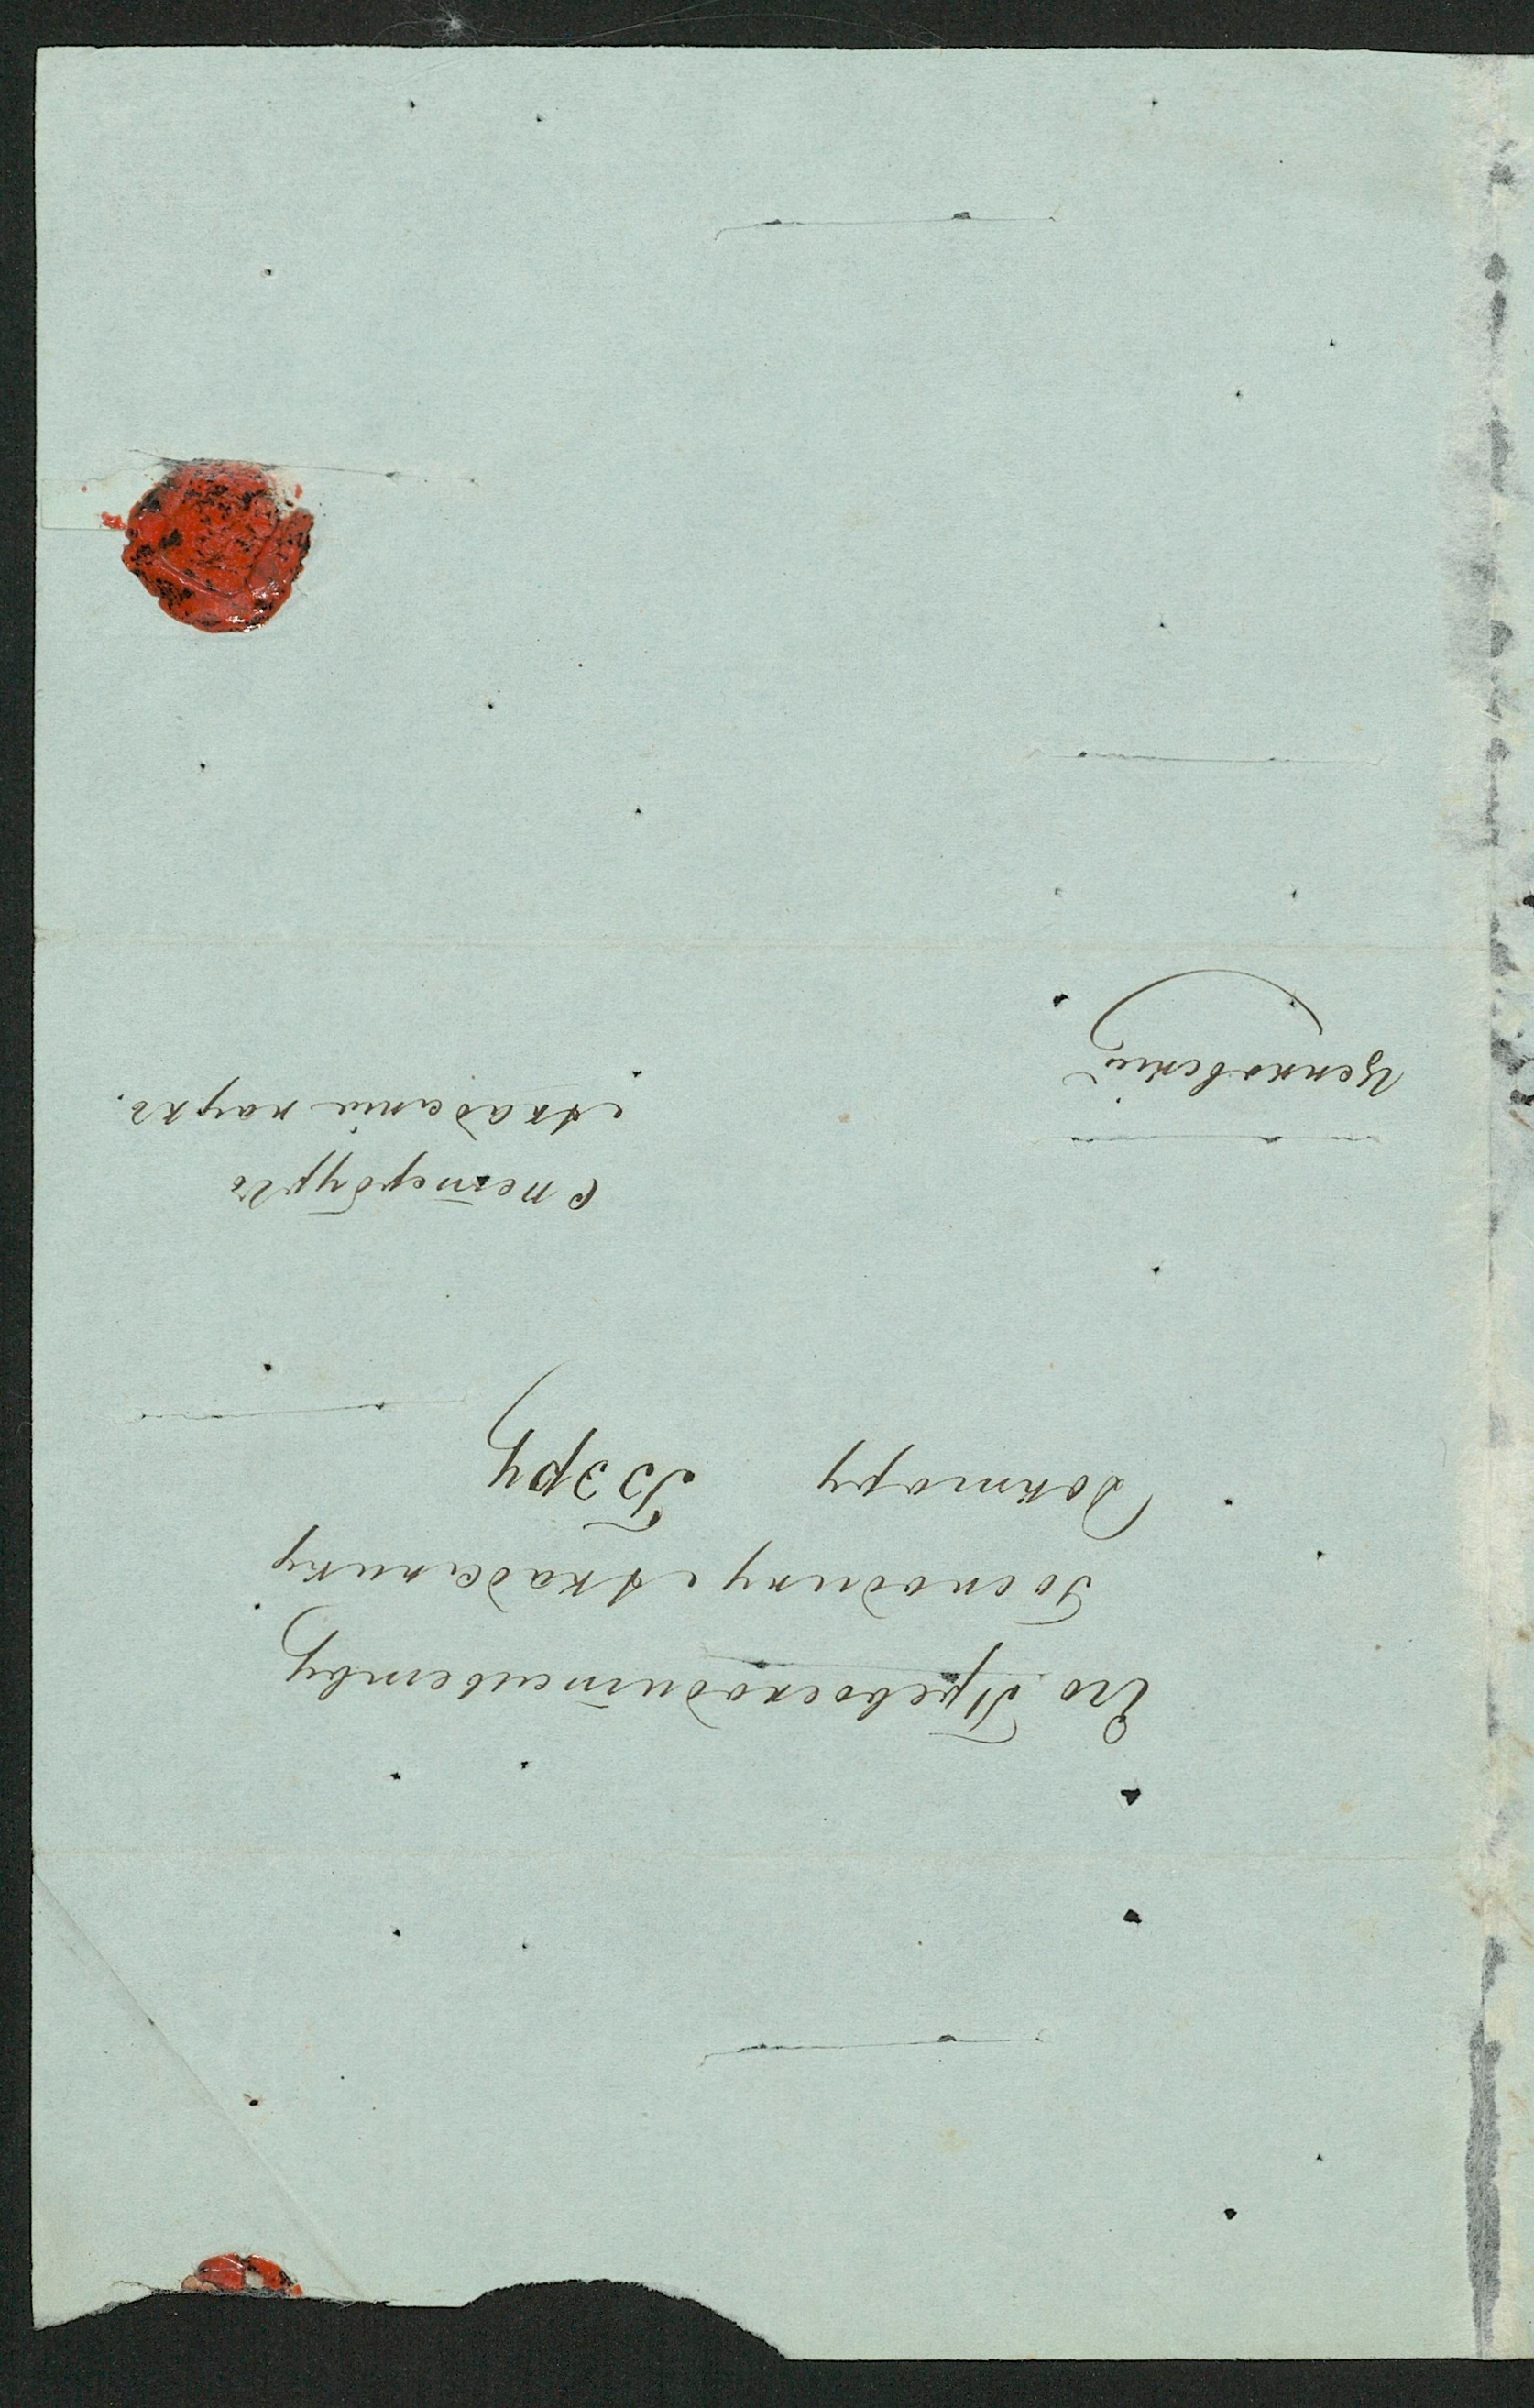 Его Превосходительству
Господину Академику
Доктору Бэру
С петербургъ
Академія наукъ.
Ценковскій